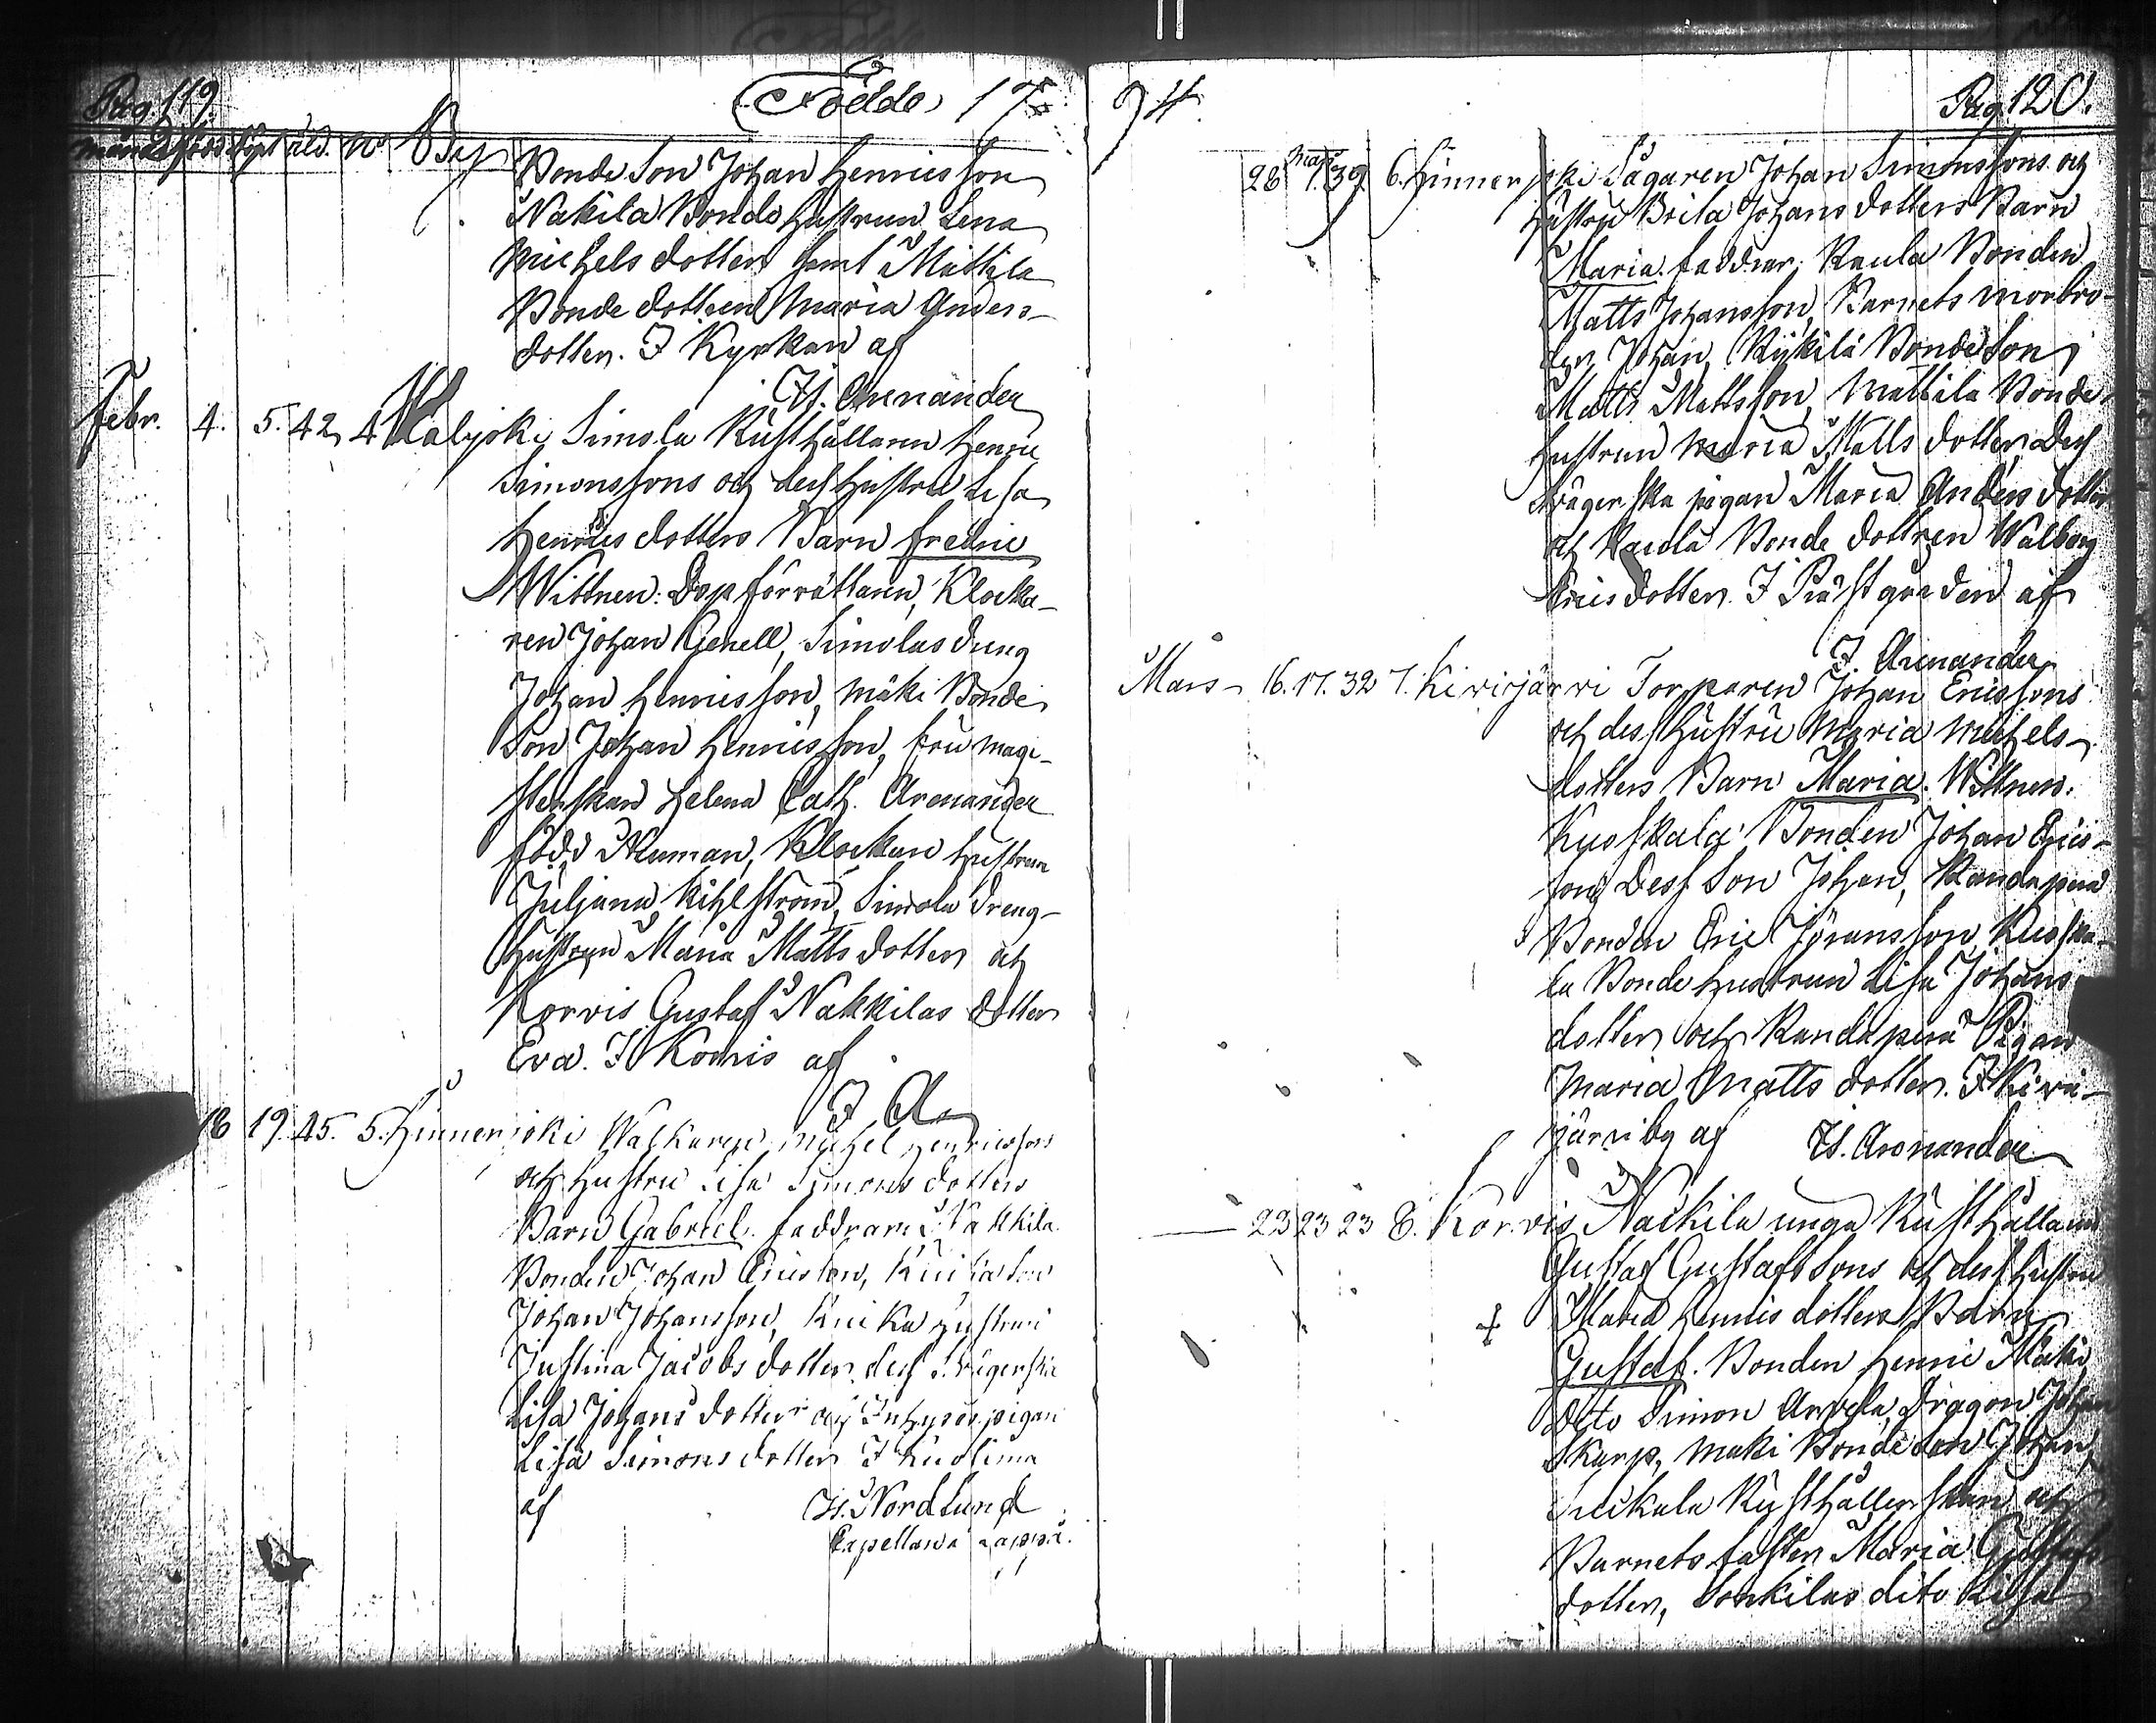 Pag. 119.
Födde 17
månad född döpt åld. No. By
Bonde Son Johan Henricsson
Nakila Bonde hustrun Lena
Michels dotter samt Mattila
Bonde dottren Maria Anders-
dotter. I Kyrkan af
Is. Arenander
Febr. 4. 5. 42. 4 Waljoki Simola Rusthållaren Henric
Simonssons och dess hustru Lisa
Henrics dotters Barn Fredric
Wittnen: Dop förrättaren, Klocka-
ren Johan Genell, Simolas dreng
Johan Henricsson, Mäki Bonde
Son Johan Henricsson, Fru Magi-
sterskan Helena Cath. Arenander
född Neuman, Klockare hustrun
Juljana Kihlström, Simola dreng-
hustrun Maria Matts dotter och
Korvis Gustaf Nakkilas dotter
Eva. I Korvis af
I. A.
18 19. 45. 5. Hinnerjoki Walkaren Michel Henricssons
och hustru Lisa Simons dotters
Barn Gabriel. Faddrar: Nakkila
Bonden Johan Ericsson, Knika Son
Johan Johansson, Knika hustrun
Justina Jacobs dotter, dess Svägerska
Lisa Johans dotter och Inhyses pigan
Lisa Simons dotter I Kuolima
af Is. Nordlund
Capellan i Lappi.
94.
Pag. 120.
28 Mars 1. 39 6. Hinnerjoki Sågaren Johan Simonssons och
hustru Brita Johans dotters Barn
Maria. Faddrar: Raula Bonden
Matts Johansson, Barnets morbro-
der Johan, Kykilä Bonde Son
Matts Mattsson, Mattila Bonde
hustrun Maria Matts dotter, Dess
Svägerska pigan Maria Anders dotter
och Raula Bonde dottren Walborg
Erics dotter. I Prästgården af
I. Arenander
Mars 16. 17. 32 7. Kivijärvi Torparen Johan Ericssons
och dess hustru Maria Michels-
dotters Barn Maria. Wittnen:
Kuoskala Bonden Johan Erics-
son, Dess Son Johan, Randapää
Bonden Eric Jöransson, Kuoska-
la Bonde hustrun Lisa Johans
dotter och Randapää Pigan
Maria Matts dotter. I Kivi-
järvi by af Is. Arenander
23 23 23 8. Korvis Nackila unga Rusthållaren
Gustaf Gustafssons och dess hustru
+ Maria Henrics dotters Barn
Gustaf. Bonden Henric Mäki
dito Simon Arvela, Dragon Johan
Skarp, Mäki Bonde Son Johan,
Rusthållerskan och
Barnets faster Maria Gustafs
dotter, Sonkilas dito Lisa